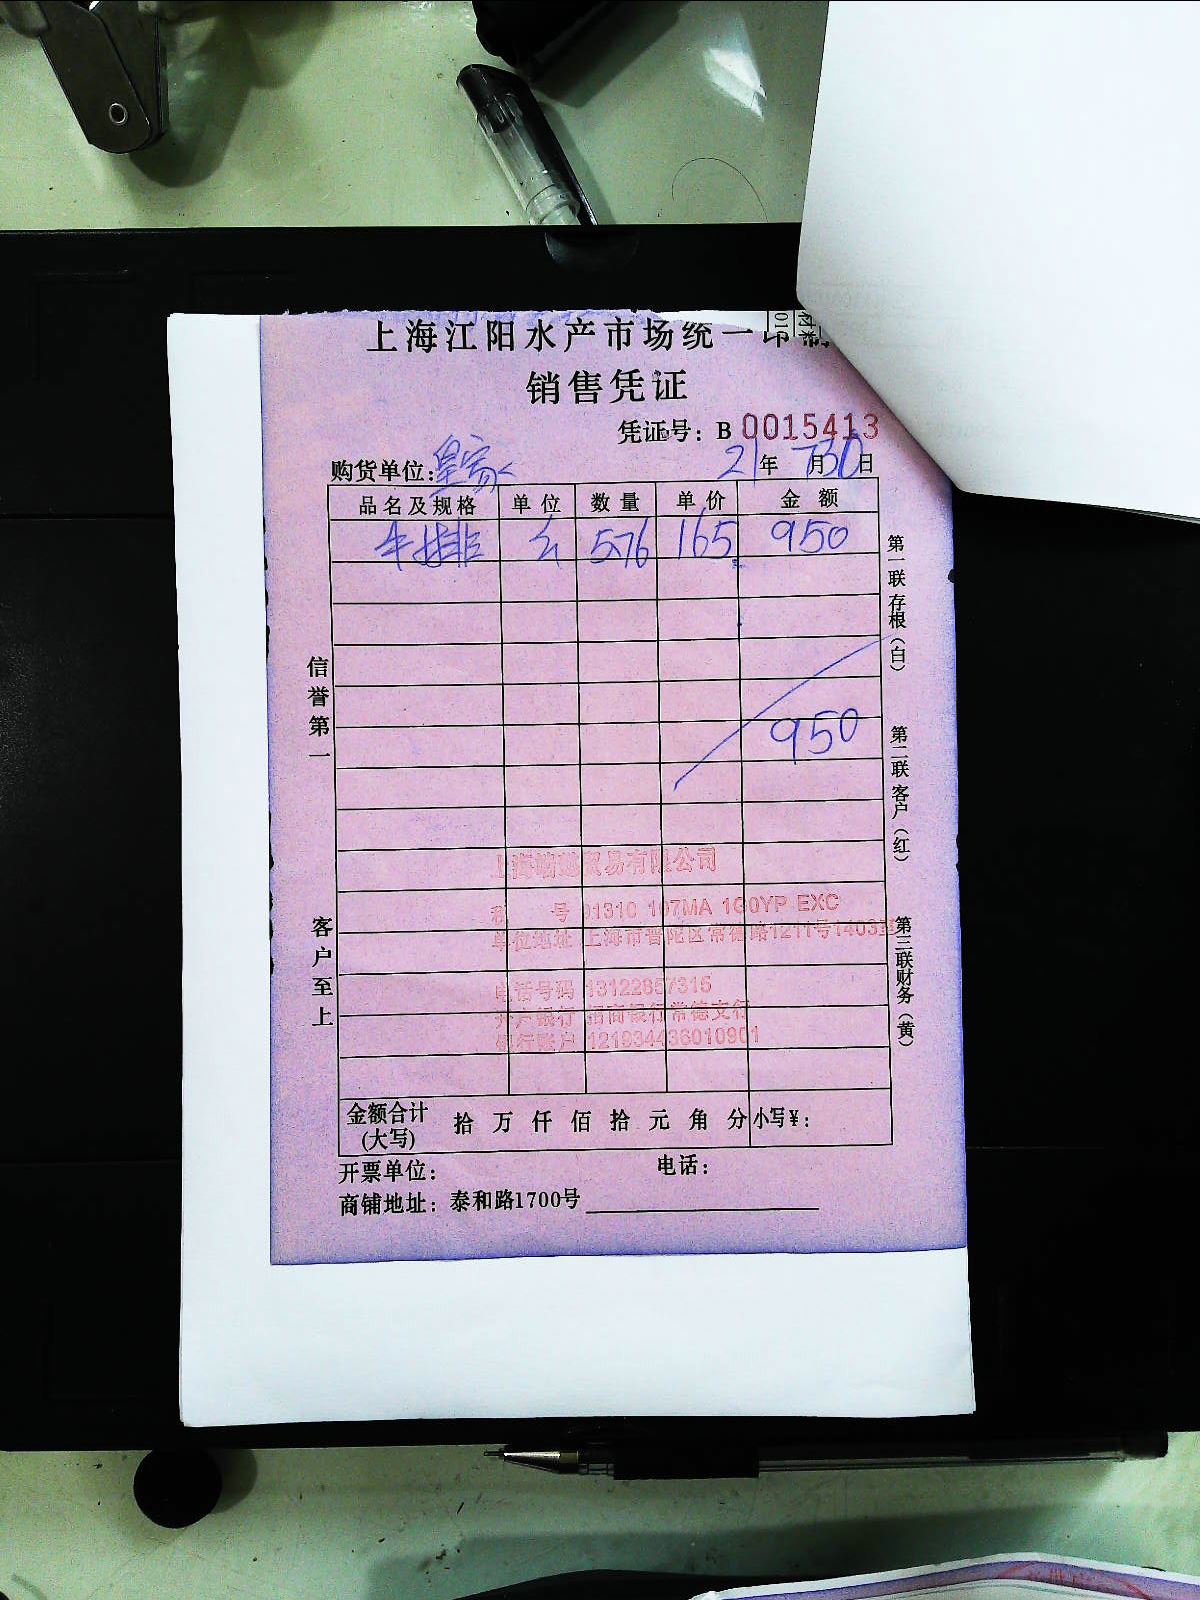 上海江阳水产市场统一印制
销售凭证
凭证号：B 0015413
购货单位：皇家 21年 7月30日
品名及规格 单位 数量 单价 金额
牛排 576 165 950
950
第一联存根（白）
第二联客户（红）
第三联财务（黄）
信誉第一
客户至上
贸易有限公司
单位地址 上海市普陀区常德路1211号1403室
电话号码 13122857315
开户银行 招商银行常德支行
银行账户 121934436010901
金额合计(大写) 拾 万 仟 佰 拾 元 角 分 小写¥：
开票单位： 电话：
商铺地址：泰和路1700号